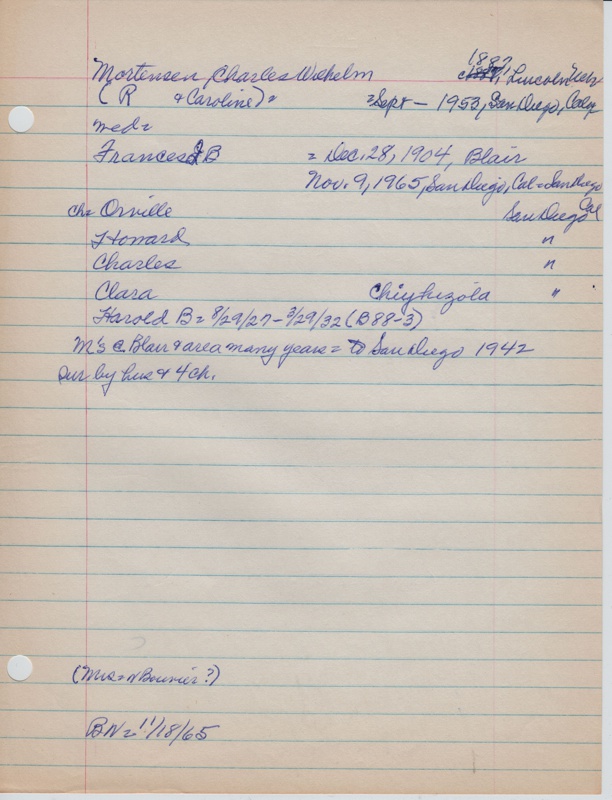 1882
Mortensen, Charles Wilhelm , Lincoln Neb
( R & Caroline) = = Sept - 1953, San Diego, Calif
med =
Frances J B = Dec. 28, 1904, Blair
Nov. 9, 1965, San Diego, Cal = San Diego
Cal
ch = Orville San Diego
Howard "
Charles "
Clara "
Harold B = 8/29/27 - 3/29/32 (B88-3)
M's c. Blair & area many years = to San Diego 1942
Sur by hus & 4 ch.
(Mrs = N Bouvier?)
BN = 11/18/65